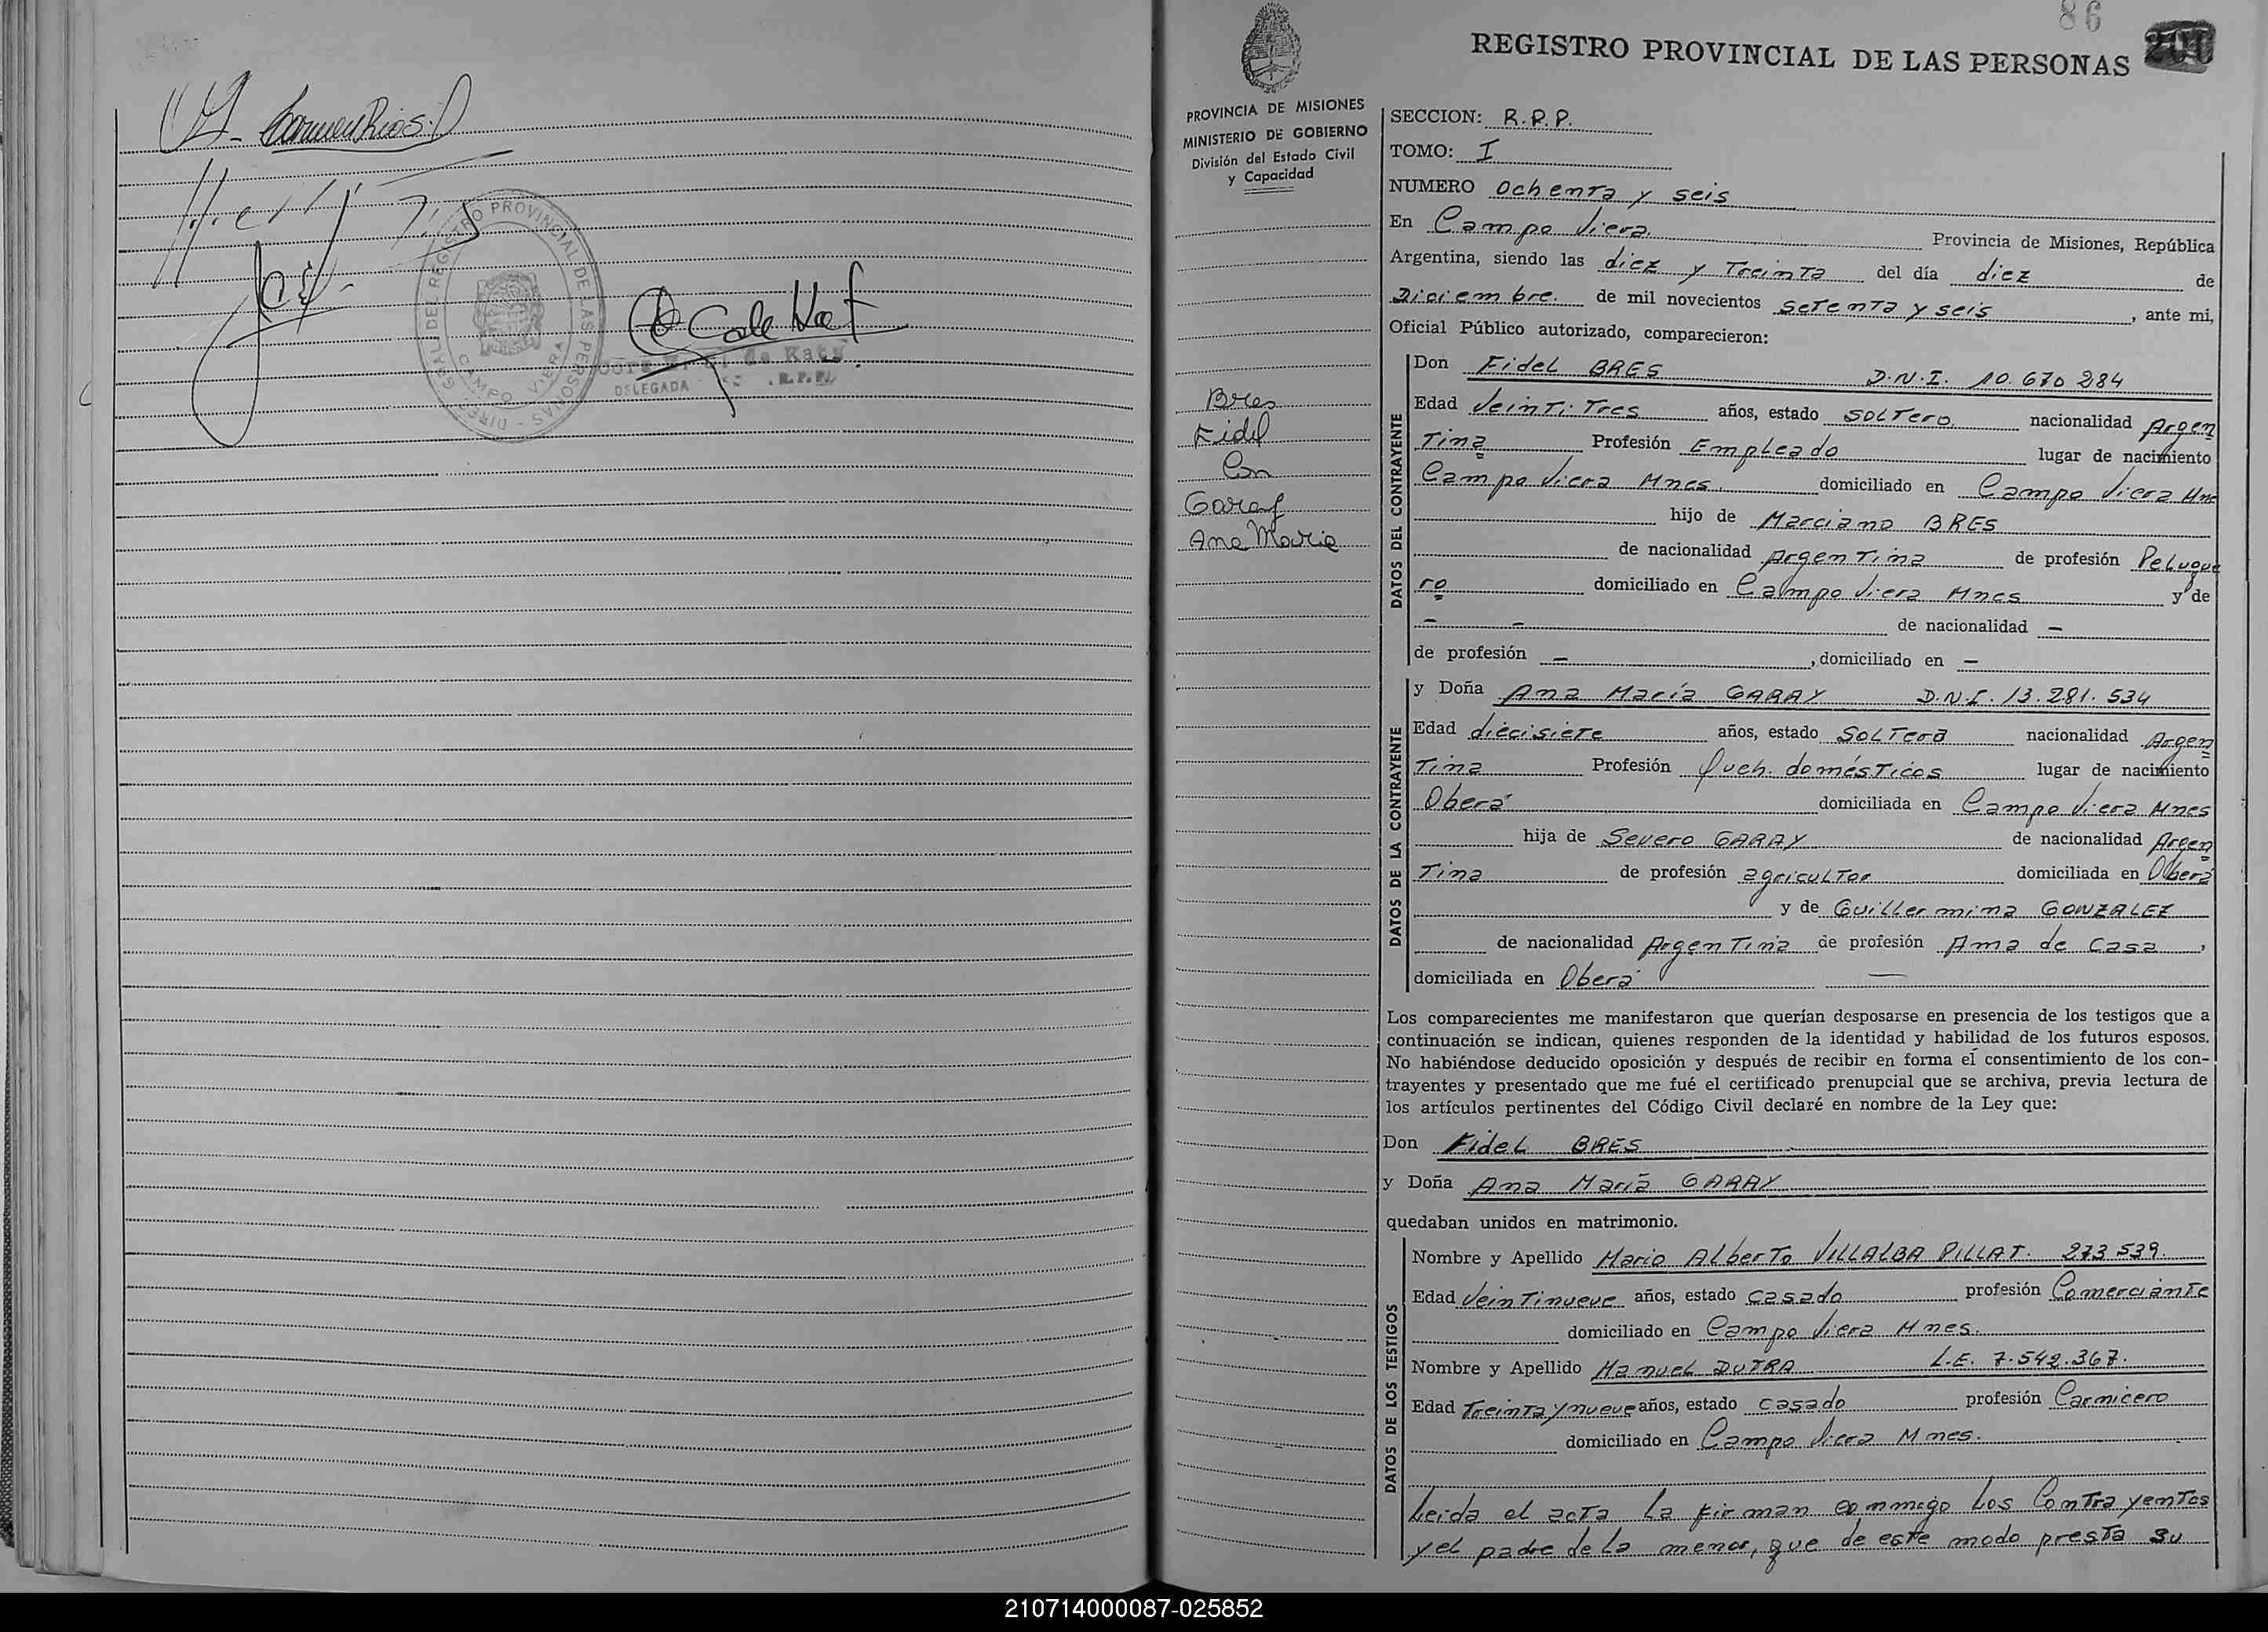 Carmen Rios
DIREC. GRAL DEL REGISTRO PROVINCIAL DE LAS PERSONAS
CAMPO VIERA
de Katz
DELEGADA R.P.P.
86
REGISTRO PROVINCIAL DE LAS PERSONAS
PROVINCIA DE MISIONES
MINISTERIO DE GOBIERNO
División del Estado Civil
y Capacidad
Bres
Fidel
Con
Garay
Ana Maria
SECCION: R.P.P.
TOMO: I
NUMERO ochenta y seis
En Campo Viera Provincia de Misiones, República
Argentina, siendo las diez y Treinta del día diez de
Diciembre. de mil novecientos setenta y seis, ante mi,
Oficial Público autorizado, comparecieron:
DATOS DEL CONTRAYENTE
Don Fidel BRES D.N.I. 10.670 284
Edad Veinti Tres años, estado solTero nacionalidad Argen
Tina Profesión Empleado lugar de nacimiento
Campo Viera Mnes. domiciliado en Campo Viera Mne
hijo de Marciano BRES
de nacionalidad ArgenTina de profesión Peluque
ro domiciliado en Campo Viera Mnes y de
- - de nacionalidad -
de profesión -, domiciliado en -
DATOS DE LA CONTRAYENTE
y Doña Ana María GARAY D.N.I. 13.281.534
Edad diecisieTe años, estado SolTera nacionalidad Argen
Tina Profesión Queh. domésTicos lugar de nacimiento
Oberá domiciliada en Campo Viera Mnes
hija de Severo GARAY de nacionalidad Argen
Tina de profesión agriculTor domiciliada en Oberá
y de Guillermina GONZALEZ
de nacionalidad ArgenTina de profesión Ama de casa,
domiciliada en Oberá —
Los comparecientes me manifestaron que querían desposarse en presencia de los testigos que a
continuación se indican, quienes responden de la identidad y habilidad de los futuros esposos.
No habiéndose deducido oposición y después de recibir en forma el consentimiento de los con-
trayentes y presentado que me fué el certificado prenupcial que se archiva, previa lectura de
los artículos pertinentes del Código Civil declaré en nombre de la Ley que:
Don Fidel BRES
y Doña Ana María GARAY
quedaban unidos en matrimonio.
DATOS DE LOS TESTIGOS
Nombre y Apellido Mario AlberTo VILLALBA PILLAT. 273 539.
Edad VeinTinueve años, estado casado profesión ComercianTe
domiciliado en Campo Viera Mnes.
Nombre y Apellido Manuel DUTRA L.E. 7.542.367.
Edad TreinTa y nueve años, estado casado profesión Carnicero
domiciliado en Campo Viera Mnes.
Leida el acTa la firman conmigo los ConTrayenTes
y el padre de la menor, que de este modo presTa su
210714000087-025852